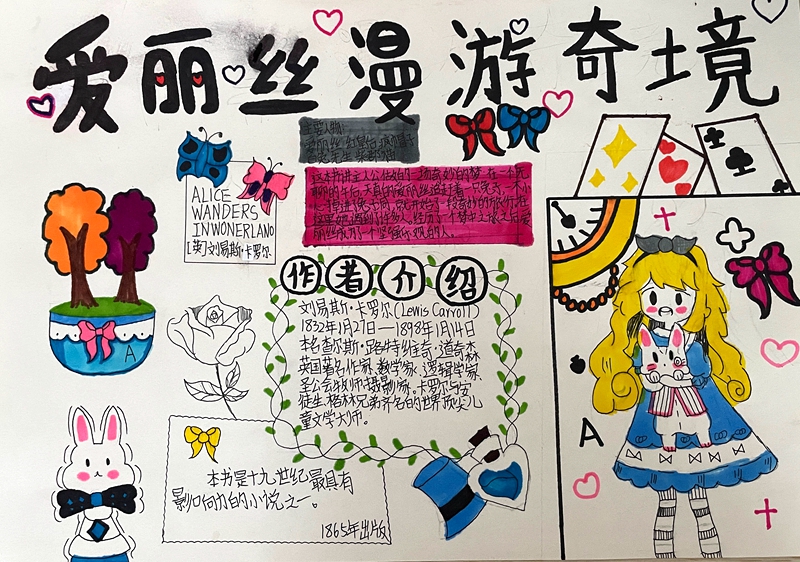 爱丽丝漫游奇境
主要人物:
ALICE
WANDERS
IN WONERLAND
[英]刘易斯·卡罗尔
这本书讲主人公在做的一场奇妙的梦,在一个无
聊的午后,天真的爱丽丝追赶着一只兔子,不小
心掉进兔子洞,就开始了一段奇妙的旅行,在
这里她遇到了许多人,经历了个梦中之旅之后爱
丽丝成为了一个坚强乐观的人。
作者介绍
刘易斯·卡罗尔(Lewis Carroll)
1832年1月27日—1898年1月14日
本名查尔斯·路特维奇·道奇森
英国著名作家、数学家、逻辑学家、
圣公会牧师、摄影家。卡罗尔与安
徒生、格林兄弟齐名的世界顶尖儿
童文学大师。
本书是十九世纪最具有
影响力的小说之一。
1865年出版
A
A